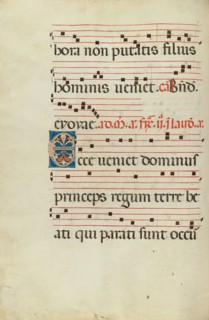 hora non putatis filius
hominis veniet. ca Bñd.
evovae.
Ecce veniet dominus
princeps regum terre be
ati qui parati sunt occu